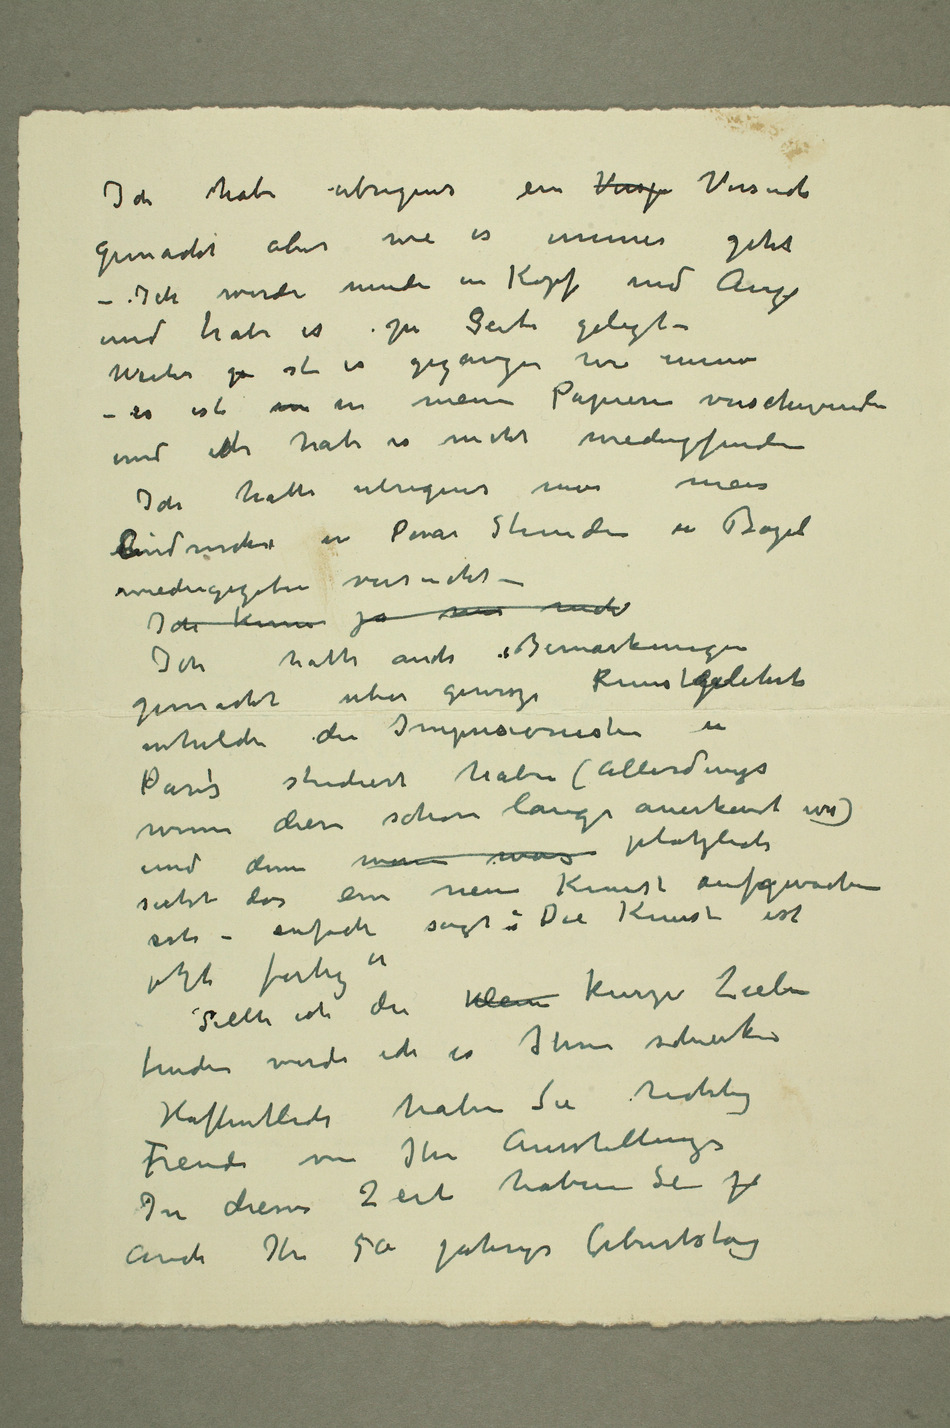 Ich habe übrigens ein Versuch
gemacht aber wie es immer geht
– Ich werde müde in Kopf und Auge
und habe es zu Seite gelegt –
Weiter ist es gegangen wie immer
– es ist in meine Papieren verschwunden
und ich habe es nicht wiedergefunden
Ich hatte übrigens nur mein
Eindrucke in Paar Stunden in
wiedergegeben versucht –
Ich kann ja nur nicht
Ich hatte auch Bemerkungen
gemacht über gewisse Kunstgelehrte
die Impresionisten in
Paris studiert haben (allerdings
wenn diese schon lange anerkant war)
und dann plötzlich
sieht das ein neue Kunst aufgewachsen
ist – einfach sagt: "Die Kunst ist
jetzt fertig"
Sollte ich die kurze Zeilen
finden werde ich es Ihnen schicken
Hoffentlich haben Sie richtig
Freude von Ihre Ausstellung
In dieser Zeit haben Sie ja
auch Ihr 50 jähriges Geburtstag